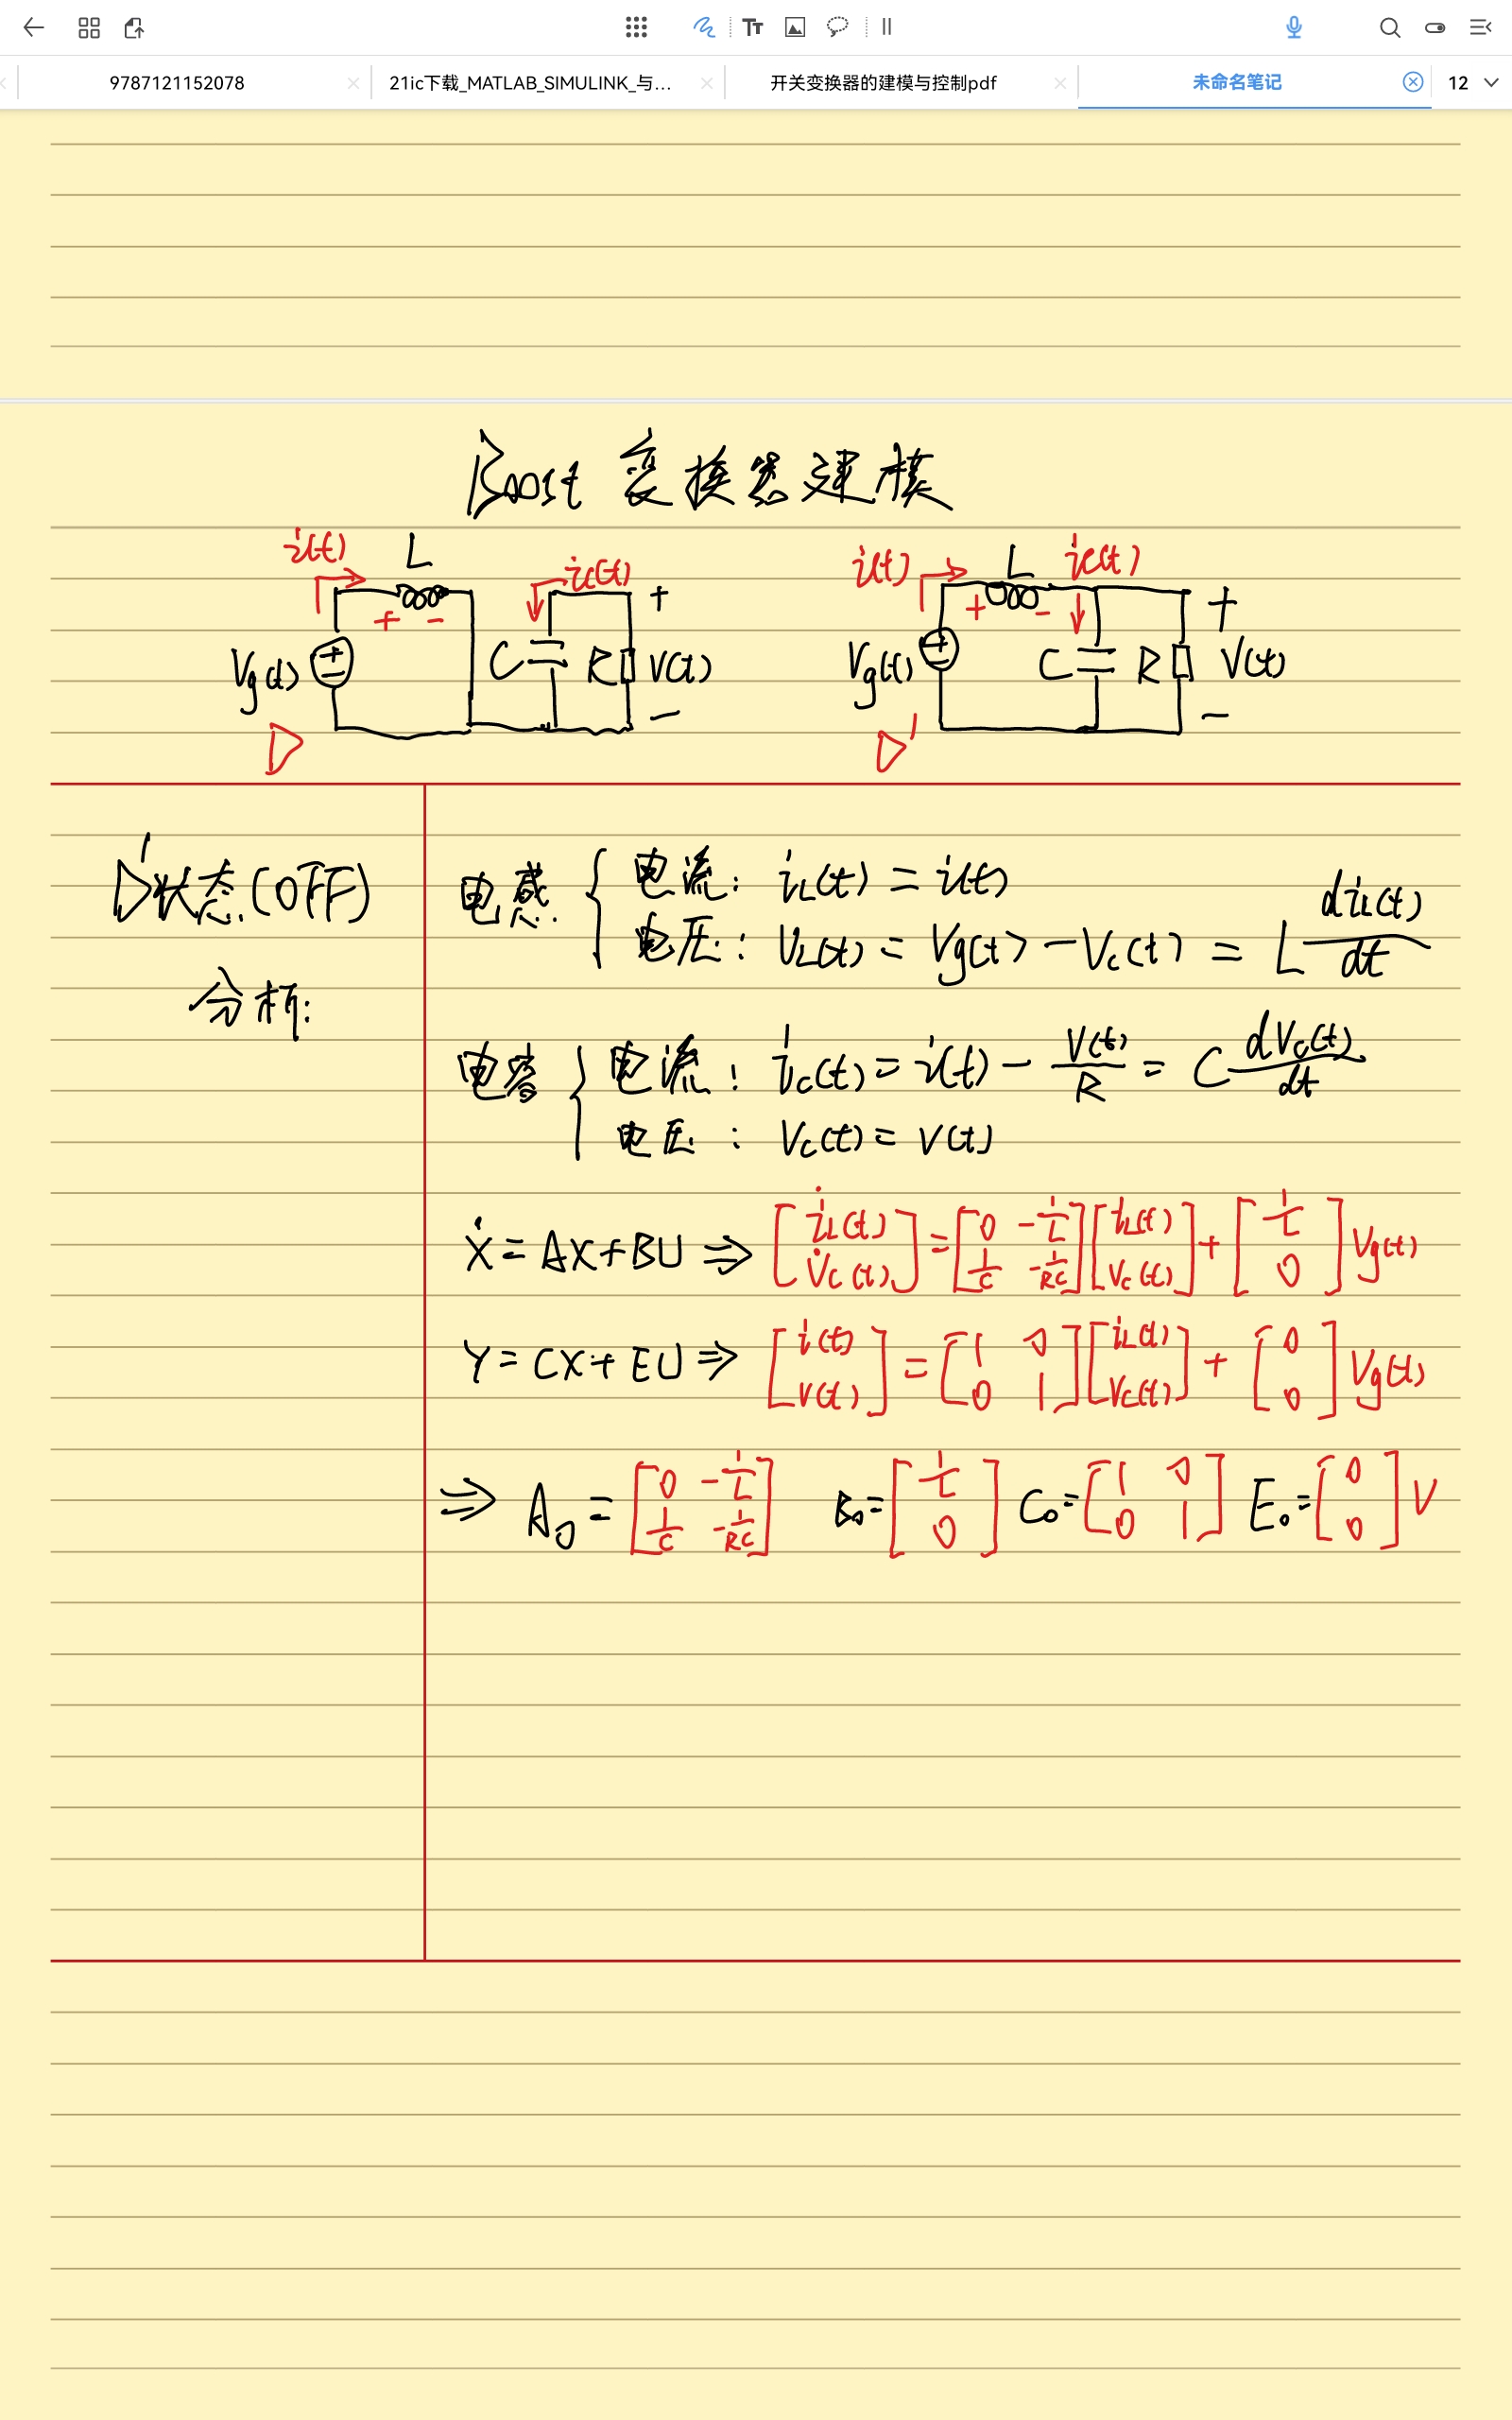 TT
9787121152078
21ic下载_MATLAB_SIMULINK_与...
开关变换器的建模与控制pdf
未命名笔记
12
Boost 变换器建模
i(t) L ic(t) + i(t) L ic(t) +
+ - + -
Vg(t) C R V(t) Vg(t) C R V(t)
- -
D D'
D'状态(OFF)
分析:
电感 { 电流: iL(t) = i(t)
电压: VL(t) = Vg(t) - Vc(t) = L diL(t)/dt
电容 { 电流: ic(t) = i(t) - V(t)/R = C dVc(t)/dt
电压: Vc(t) = V(t)
Ẋ = AX + BU ⇒ [i̇L(t) ; V̇c(t)] = [0 -1/L ; 1/C -1/RC] [iL(t) ; Vc(t)] + [1/L ; 0] Vg(t)
Y = CX + EU ⇒ [i(t) ; V(t)] = [1 0 ; 0 1] [iL(t) ; Vc(t)] + [0 ; 0] Vg(t)
⇒ A0 = [0 -1/L ; 1/C -1/RC] B0 = [1/L ; 0] C0 = [1 0 ; 0 1] E0 = [0 ; 0] V